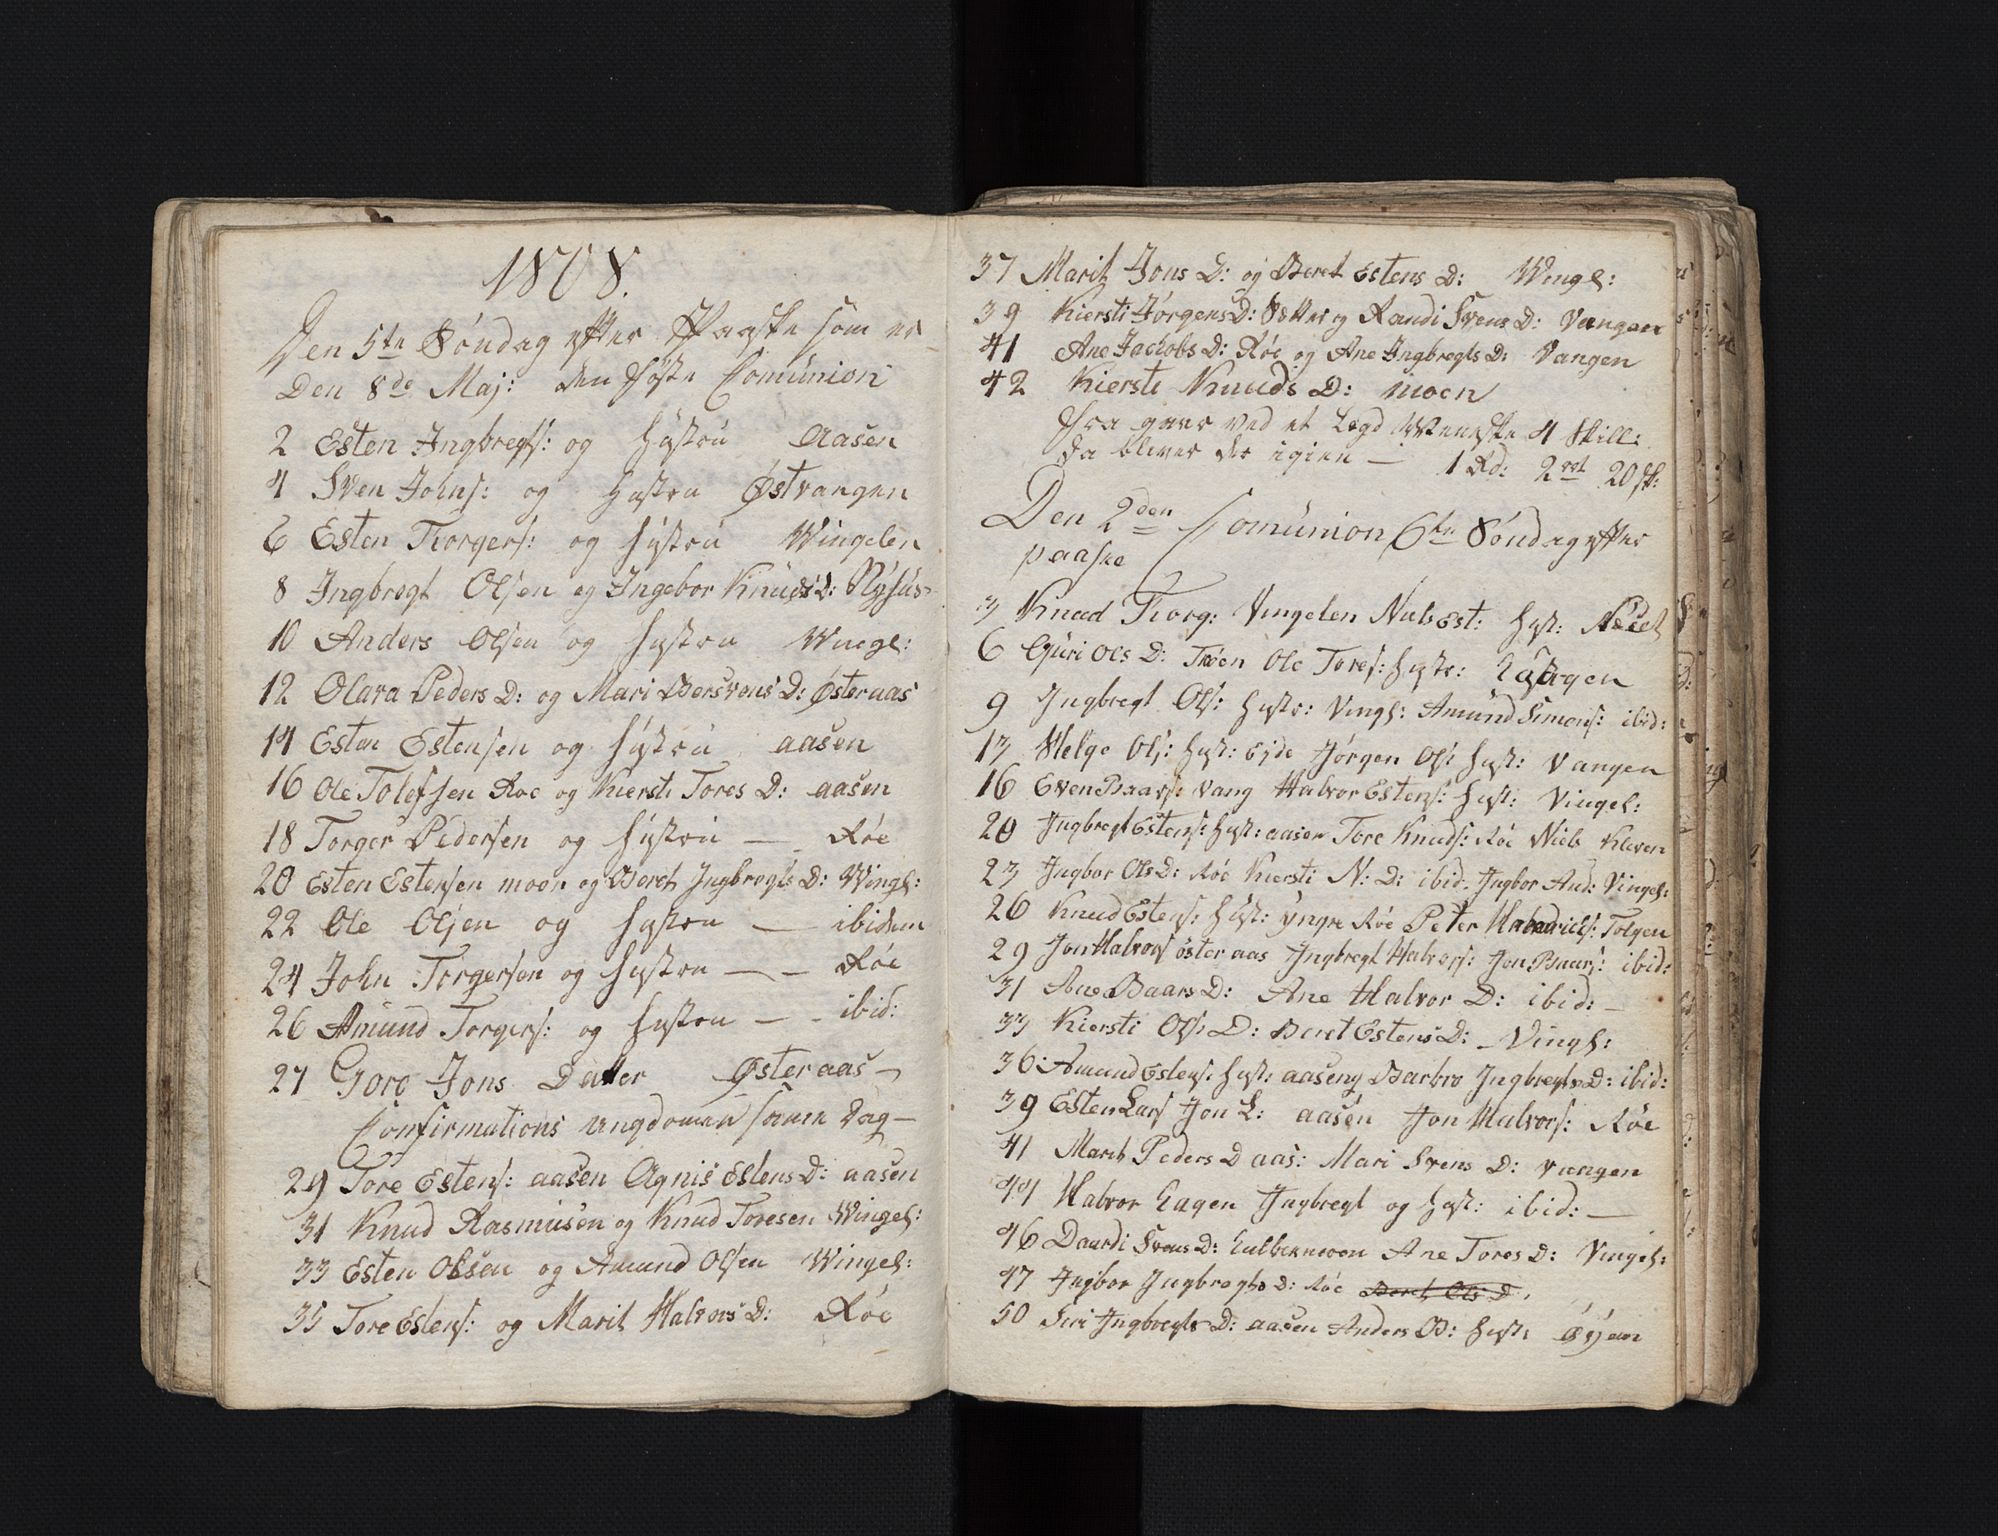 1808.
Den 5te Søndag efter Paaske som er
Den 8de Maj: den Føste Comùnion
2 Esten Ingbregts: og Hùstrù Aasen
4 Sven Johns: og Hustru Østvangen
6 Esten Torgers: og Hùstrù Wingelen
8 Ingbregt Olsen og Ingebor Knuds D:
10 Anders Olsen og Hustru Wingl:
12 Olava Peders D: og Mari Bersvens D: Østeraas
14 Esten Estensen og Hùstrù aasen
16 Ole Tolefsen Røe og Kiersti Tores D: aasen
18 Torger Pedersen og Hùstrù — Røe
20 Esten Estensen moen og Beret Ingbregts D: Wingl:
22 Ole Olsen og Hustru — ibidem
24 John Torgersen og Hustru — — Røe
26 Amund Torgers: og Hustru — - ibid:
27 Goro Jons Datter Østeraas —
Confirmations ungdomen samme Dag —
29 Tore Estens: aasen Agnis Estens D: aasen
31 Knud Rasmusen og Knud Toresen Wingel:
33 Esten Olssen og Amund Olsen Wingel:
35 Tore Estens: og Marit Halvors D: Røe
37 Marit Jons D: og Beret Estens D: Wingl:
39 Kiersti Jørgens D: og Randi Svens D: Vangen
41 Ane Jacobs D: Røe og Ane Ingbregts D: Vangen
42 Kiersti Knuds D: moen
Fra gaar ved et Legd Menneske 4 Skill:
da bliver der igien — 1 Rd: 2 rt 20 sk:
Den 2den Comùnion 6te Søndag efter
paaske
3 Knud Torg: Vingelen Niels Est: Hust: Næset
6 Guri Ols D: Trøen Ole Tores: Hustr:
9 Ingbregt Ols: Hustr: Vingl: Amund Simens: ibid:
13 Helge Ols: Hust: Eide Jørgen Ols: Hust: Vangen
16 Even Baars: Vang Halvor Estens: Hust: Vingel:
20 Ingbregt Estens: Hust: aasen Tore Knuds: Røe Niels Kleven
23 Ingbor Ols D: Røe Kiersti N: D: ibid: Ingbor And: Vingel:
26 Knud Estens: Hust: yngre Røe Peter Tolgen
29 Jon Halvors østeraas Ingbregt Halvors: Jon Baars: ibid:
31 Ane Baars D: Ane Halvor D: ibid: —
33 Kiersti Ols D: Beret Estens D: Vingl:
36 Amund Estens: Hust: aasen og Barbro Ingbregts D: ibid:
39 Esten Lars Jon L: aasen Jon Halvors: Røe
41 Marit Peders D aas: Mari Svens D: vangen
44 Halvor Eagen Ingbregt og Hust: ibid: —
46 Svens D: Ane Tores D: Vingel:
47 Ingbor Ingbregts D: Røe Beret Ols D
50 Siri Ingbregts D: aasen Anders O: Hust: Øÿan